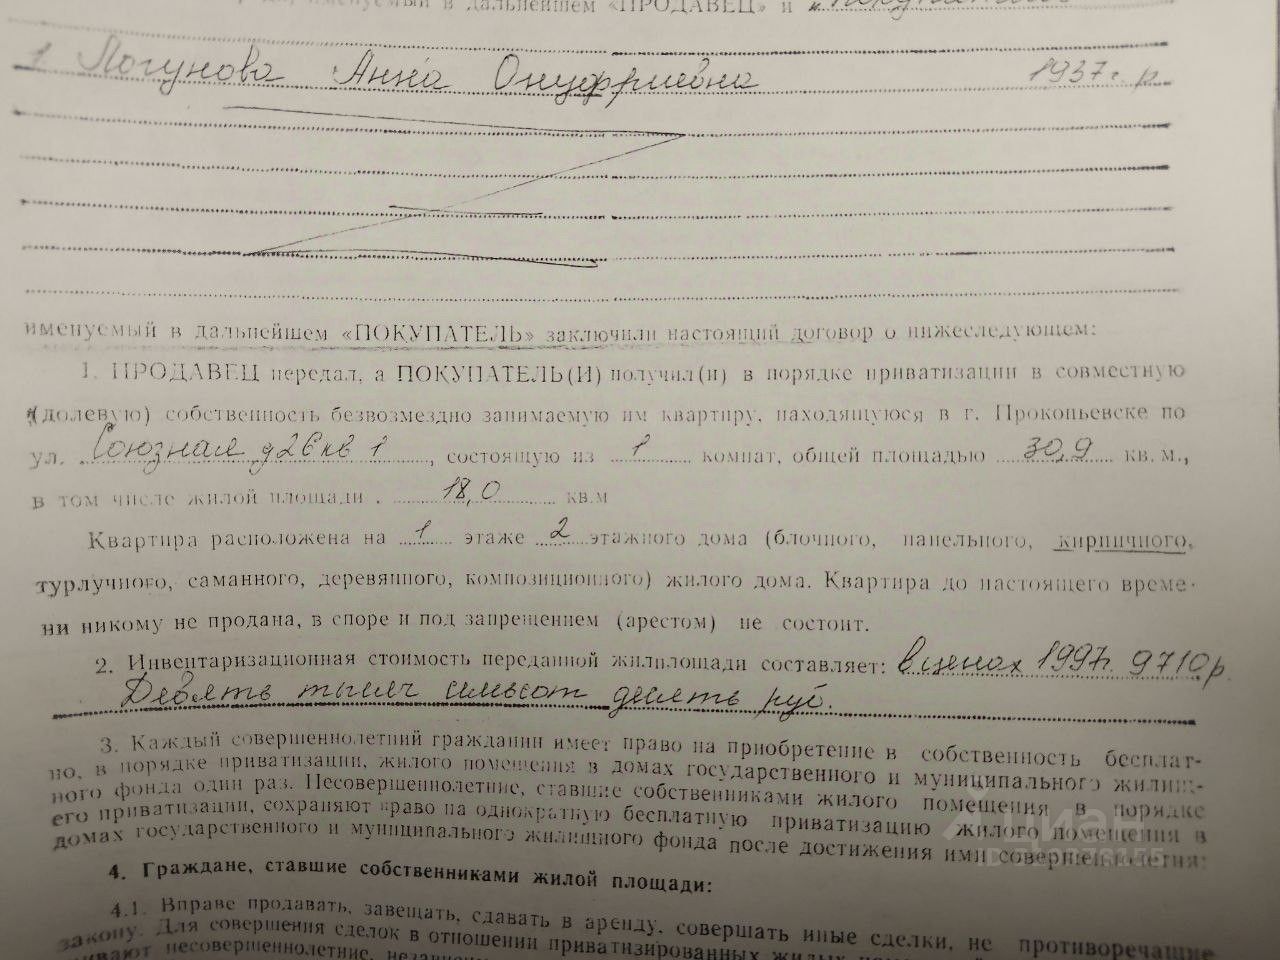 именуемый в дальнейшем «ПРОДАВЕЦ» и
1. Логунова Анна Онуфриевна 1937 г. р.
именуемый в дальнейшем «ПОКУПАТЕЛЬ» заключили настоящий договор о нижеследующем:
1. ПРОДАВЕЦ передал, а ПОКУПАТЕЛЬ(И) получил(и) в порядке приватизации в совместную
(долевую) собственность безвозмездно занимаемую им квартиру, находящуюся в г. Прокопьевске по
ул. Союзная д 26 кв 1, состоящую из 1 комнат, общей площадью 30,9 кв. м.,
в том числе жилой площади 18,0 кв.м
Квартира расположена на 1 этаже 2 этажного дома (блочного, панельного, кирпичного,
турлучного, саманного, деревянного, композиционного) жилого дома. Квартира до настоящего време-
ни никому не продана, в споре и под запрещением (арестом) не состоит.
2. Инвентаризационная стоимость переданной жилплощади составляет: в ценах 1997г. 9710 р.
Девять тысяч семьсот десять руб.
3. Каждый совершеннолетний гражданин имеет право на приобретение в собственность бесплат-
но, в порядке приватизации, жилого помещения в домах государственного и муниципального жилищ-
ного фонда один раз. Несовершеннолетние, ставшие собственниками жилого помещения в порядке
его приватизации, сохраняют право на однократную бесплатную приватизацию жилого помещения в
домах государственного и муниципального жилищного фонда после достижения ими совершеннолетия.
циан
4. Граждане, ставшие собственниками жилой площади:
4.1. Вправе продавать, завещать, сдавать в аренду, совершать иные сделки, не противоречащие
закону. Для совершения сделок в отношении приватизированных жилых
несовершеннолетние,